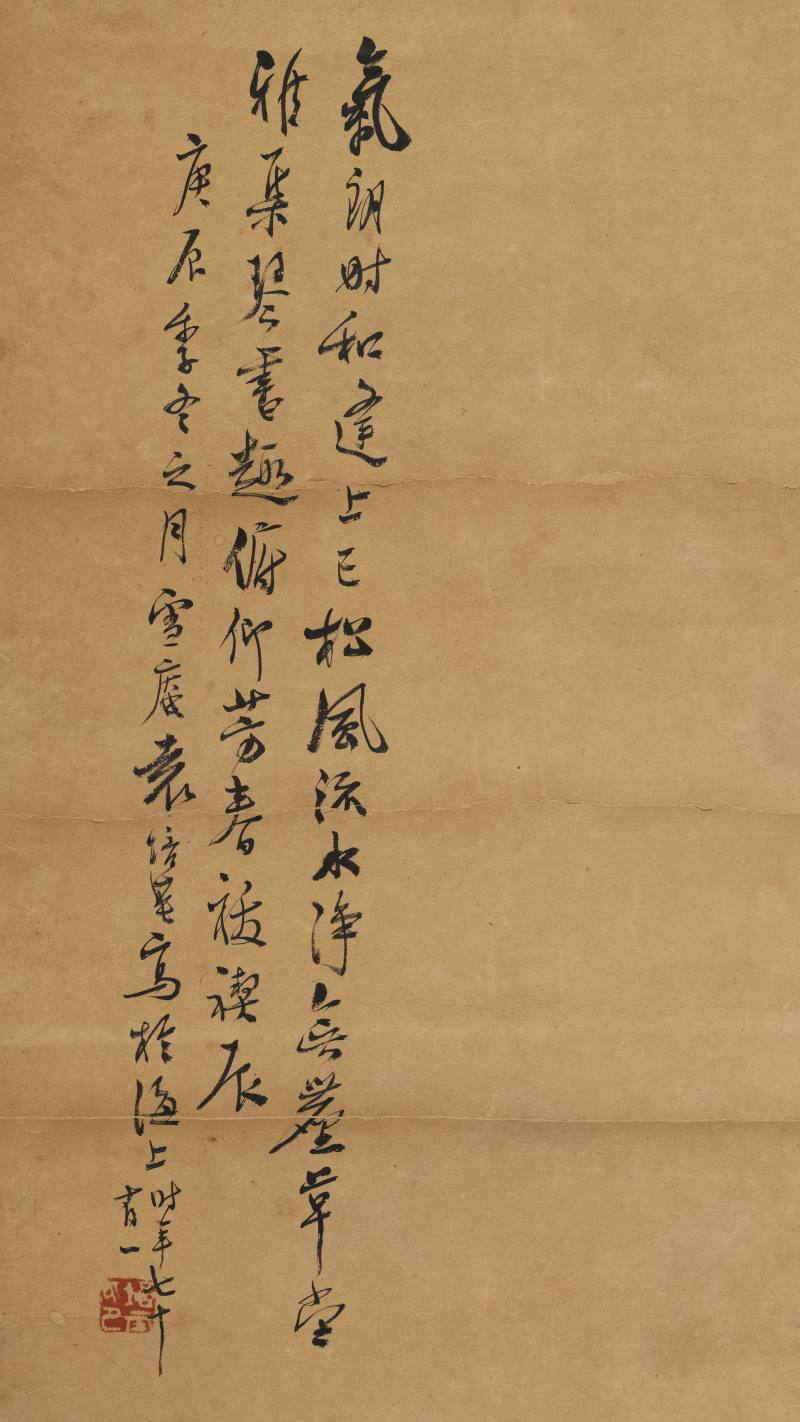 氣朗时和逢上巳松風流水淨無塵草堂
雅集琴書趣俯仰芳春祓禊辰
庚辰季冬之月雪庵袁培基寫於海上时年七十
有一